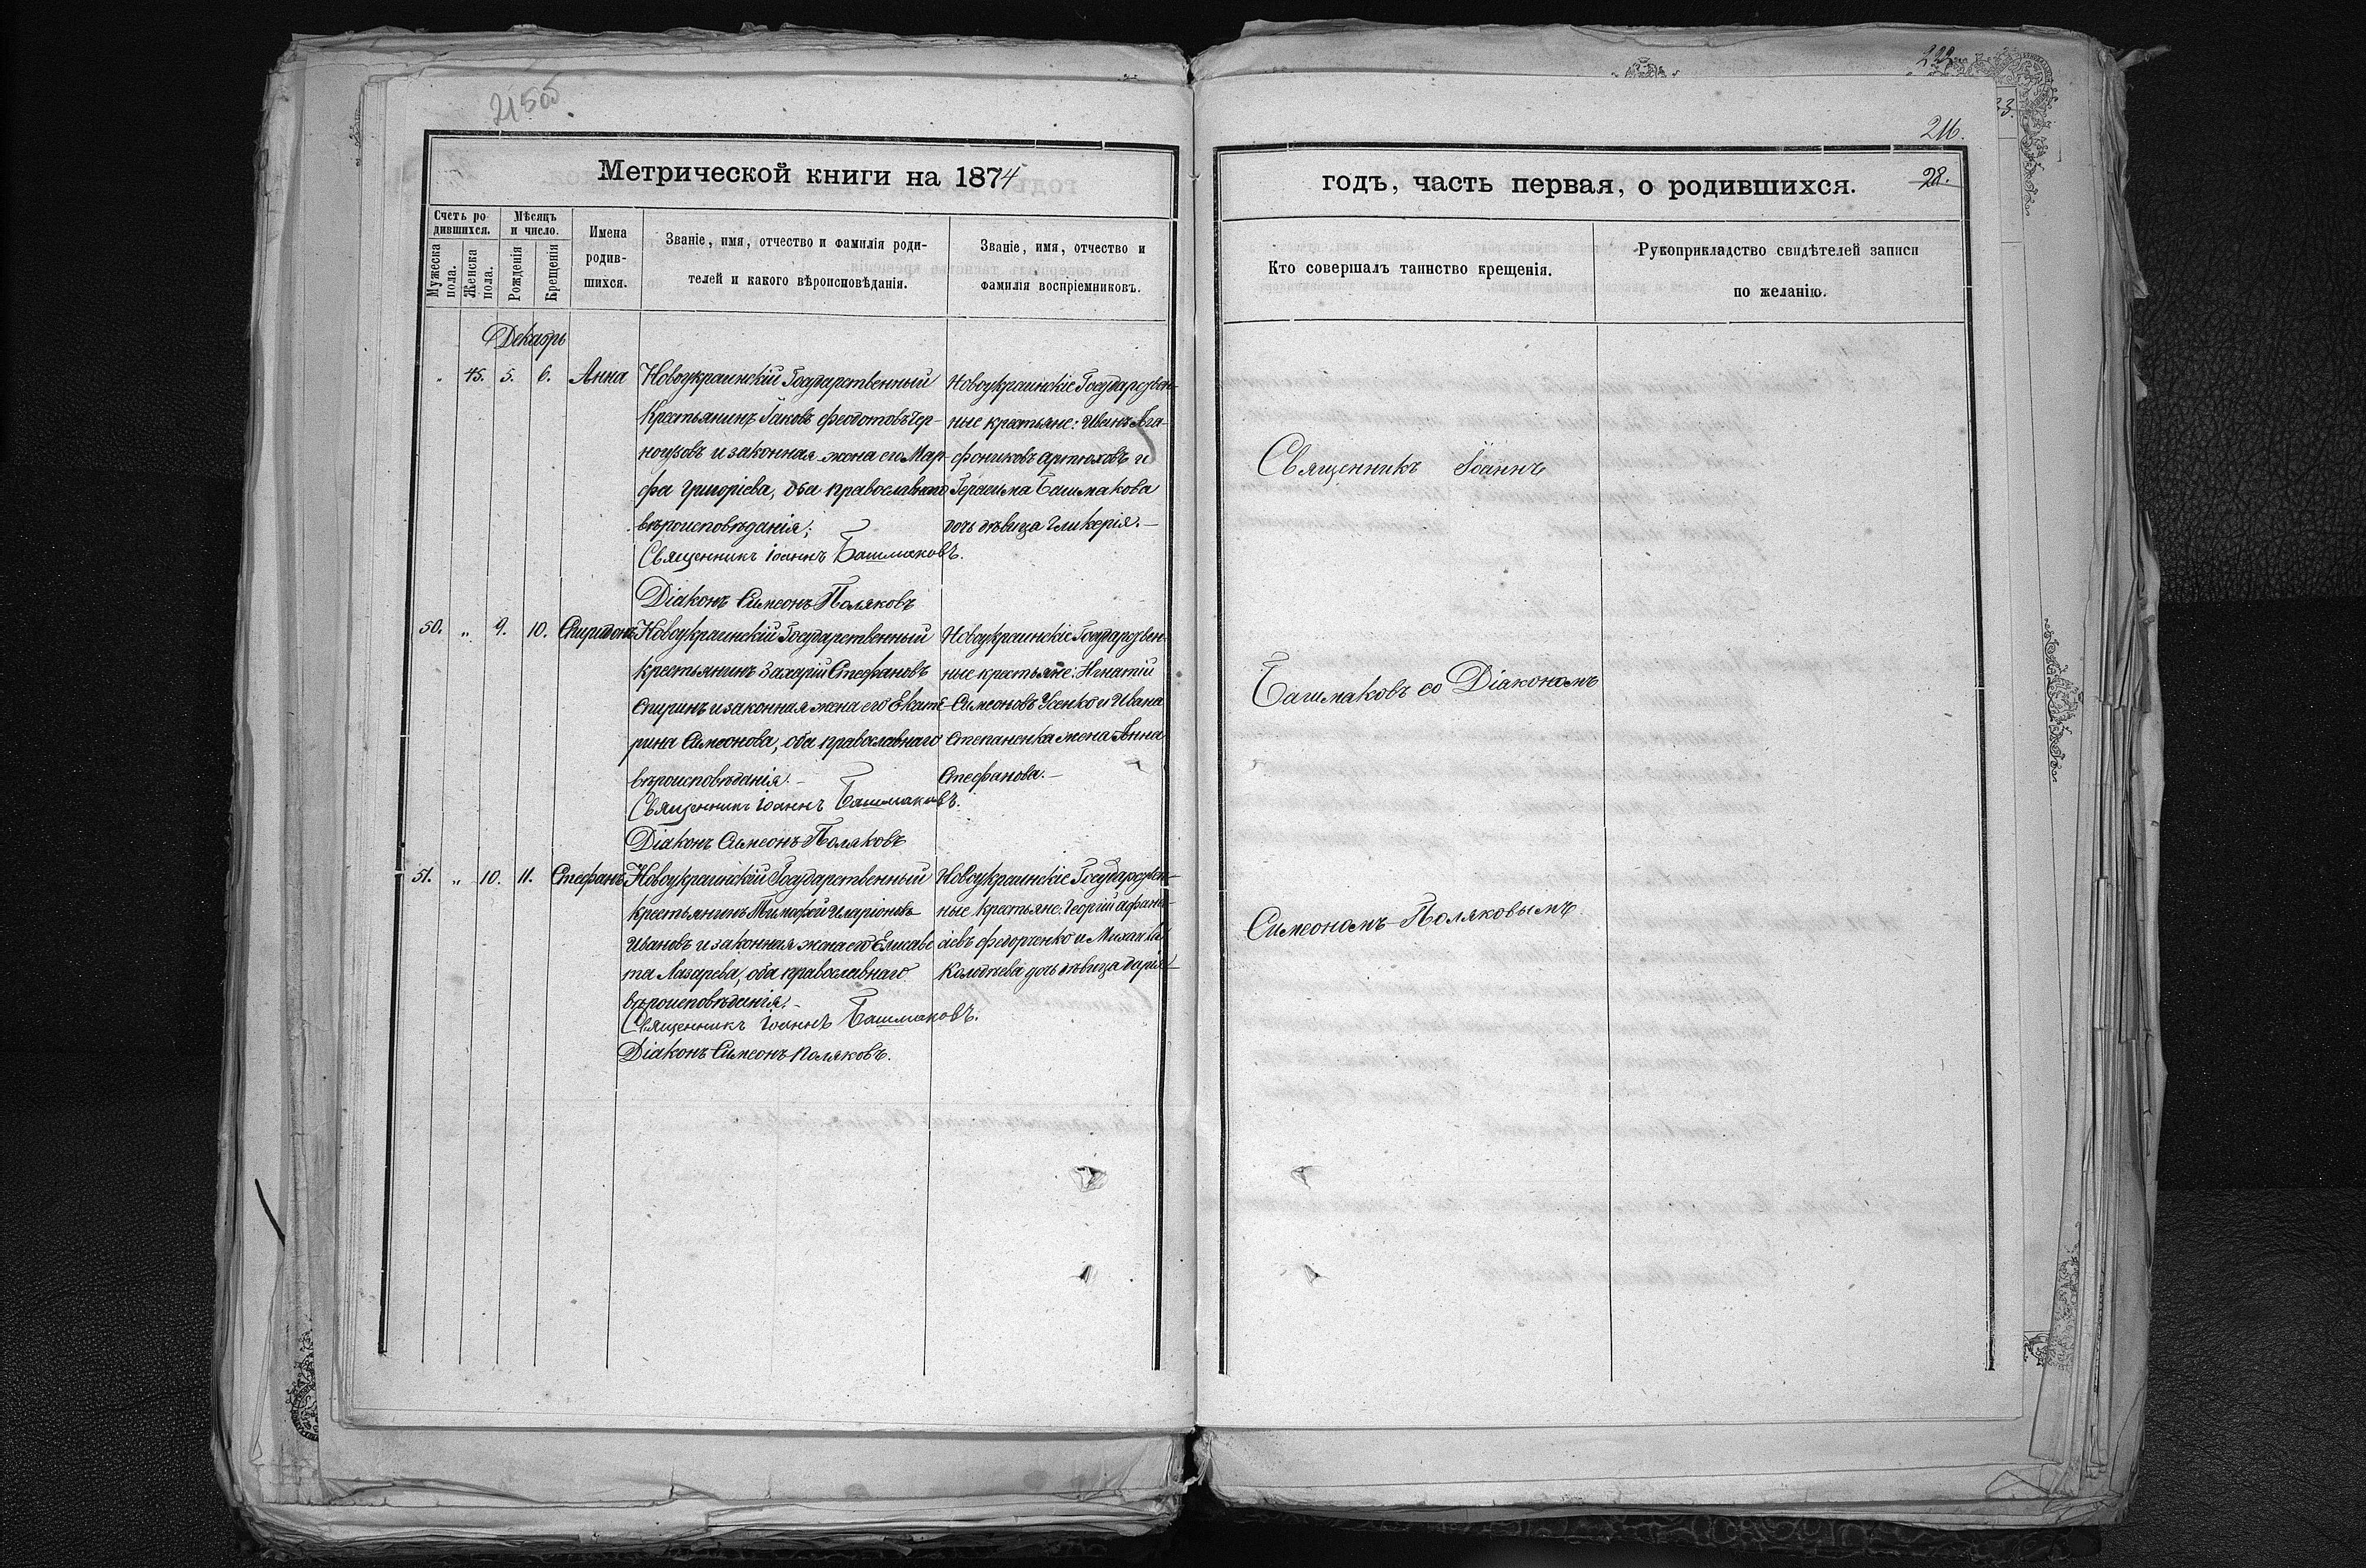 215об
Метрической книги на 1874
Счетъ ро-
дившихся.
Мужеска
пола.
Женска
пола.
Мѣсяцъ
и число.
Рожденія
Крещенія
Имена
родив-
шихся.
Званіе, имя, отчество и фамилія роди-
телей и какого вѣроисповѣданія.
Званіе, имя, отчество и
фамилія воспріемниковъ.
Декабрь
„ 45. 5. 6. Анна
Новоукраинскій Государственный
Крестьянинъ Іаковъ Феодотовъ Чер-
ноузовъ и законная жена его Мар-
фа Григоріева, оба православнаго
вѣроисповѣданія;
Священникъ Іоаннъ Башмаковъ.
Діаконъ Симеонъ Поляковъ
Новоукраинскіе Государствен-
ные крестьяне: Иванъ Ага-
фониковъ Артюховъ и
Герасима Башмакова
дочь дѣвица Гликерія.—
50. „ 9. 10. Спиридонъ
Новоукраинскій Государственный
крестьянинъ Захарій Стефановъ
Спиринъ и законная жена его Екате-
рина Симеонова, оба православнаго
вѣроисповѣданія.—
Священникъ Іоаннъ Башмаковъ.
Діаконъ Симеонъ Поляковъ
Новоукраинскіе Государствен-
ные крестьяне: Игнатій
Симеоновъ Усенко и Ивана
Степаненка жена Анна
Стефанова.—
51. „ 10. 11. Стефанъ
Новоукраинскій Государственный
крестьянинъ Тимофей Иларіоновъ
Ивановъ и законная жена его Елисаве
та Лазарева, оба православнаго
вѣроисповѣданія.—
Священникъ Іоаннъ Башмаковъ.
Діаконъ Симеонъ Поляковъ.
Новоукраинскіе Государствен-
ные крестьяне: Георгій Афана-
сіевъ Федорченко и Михаила
Колодѣева дочь дѣвица Дарія
222
33.
216.
28.
годъ, часть первая, о родившихся.
Кто совершалъ таинство крещенія.
Рукоприкладство свидѣтелей записи
по желанію.
Священникъ Іоаннъ
Башмаковъ со Діакономъ
Симеономъ Поляковымъ.